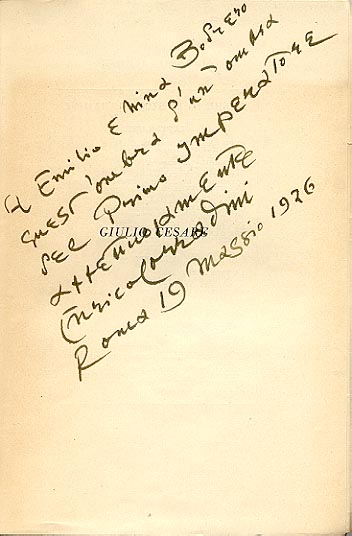 Ad Emilio e Nina Bodrero
quest'ombra d'un'ombra
del Primo IMPERATORE
affettuosamente
Enrico Corradini
Roma 19 Maggio 1926
GIULIO CESARE